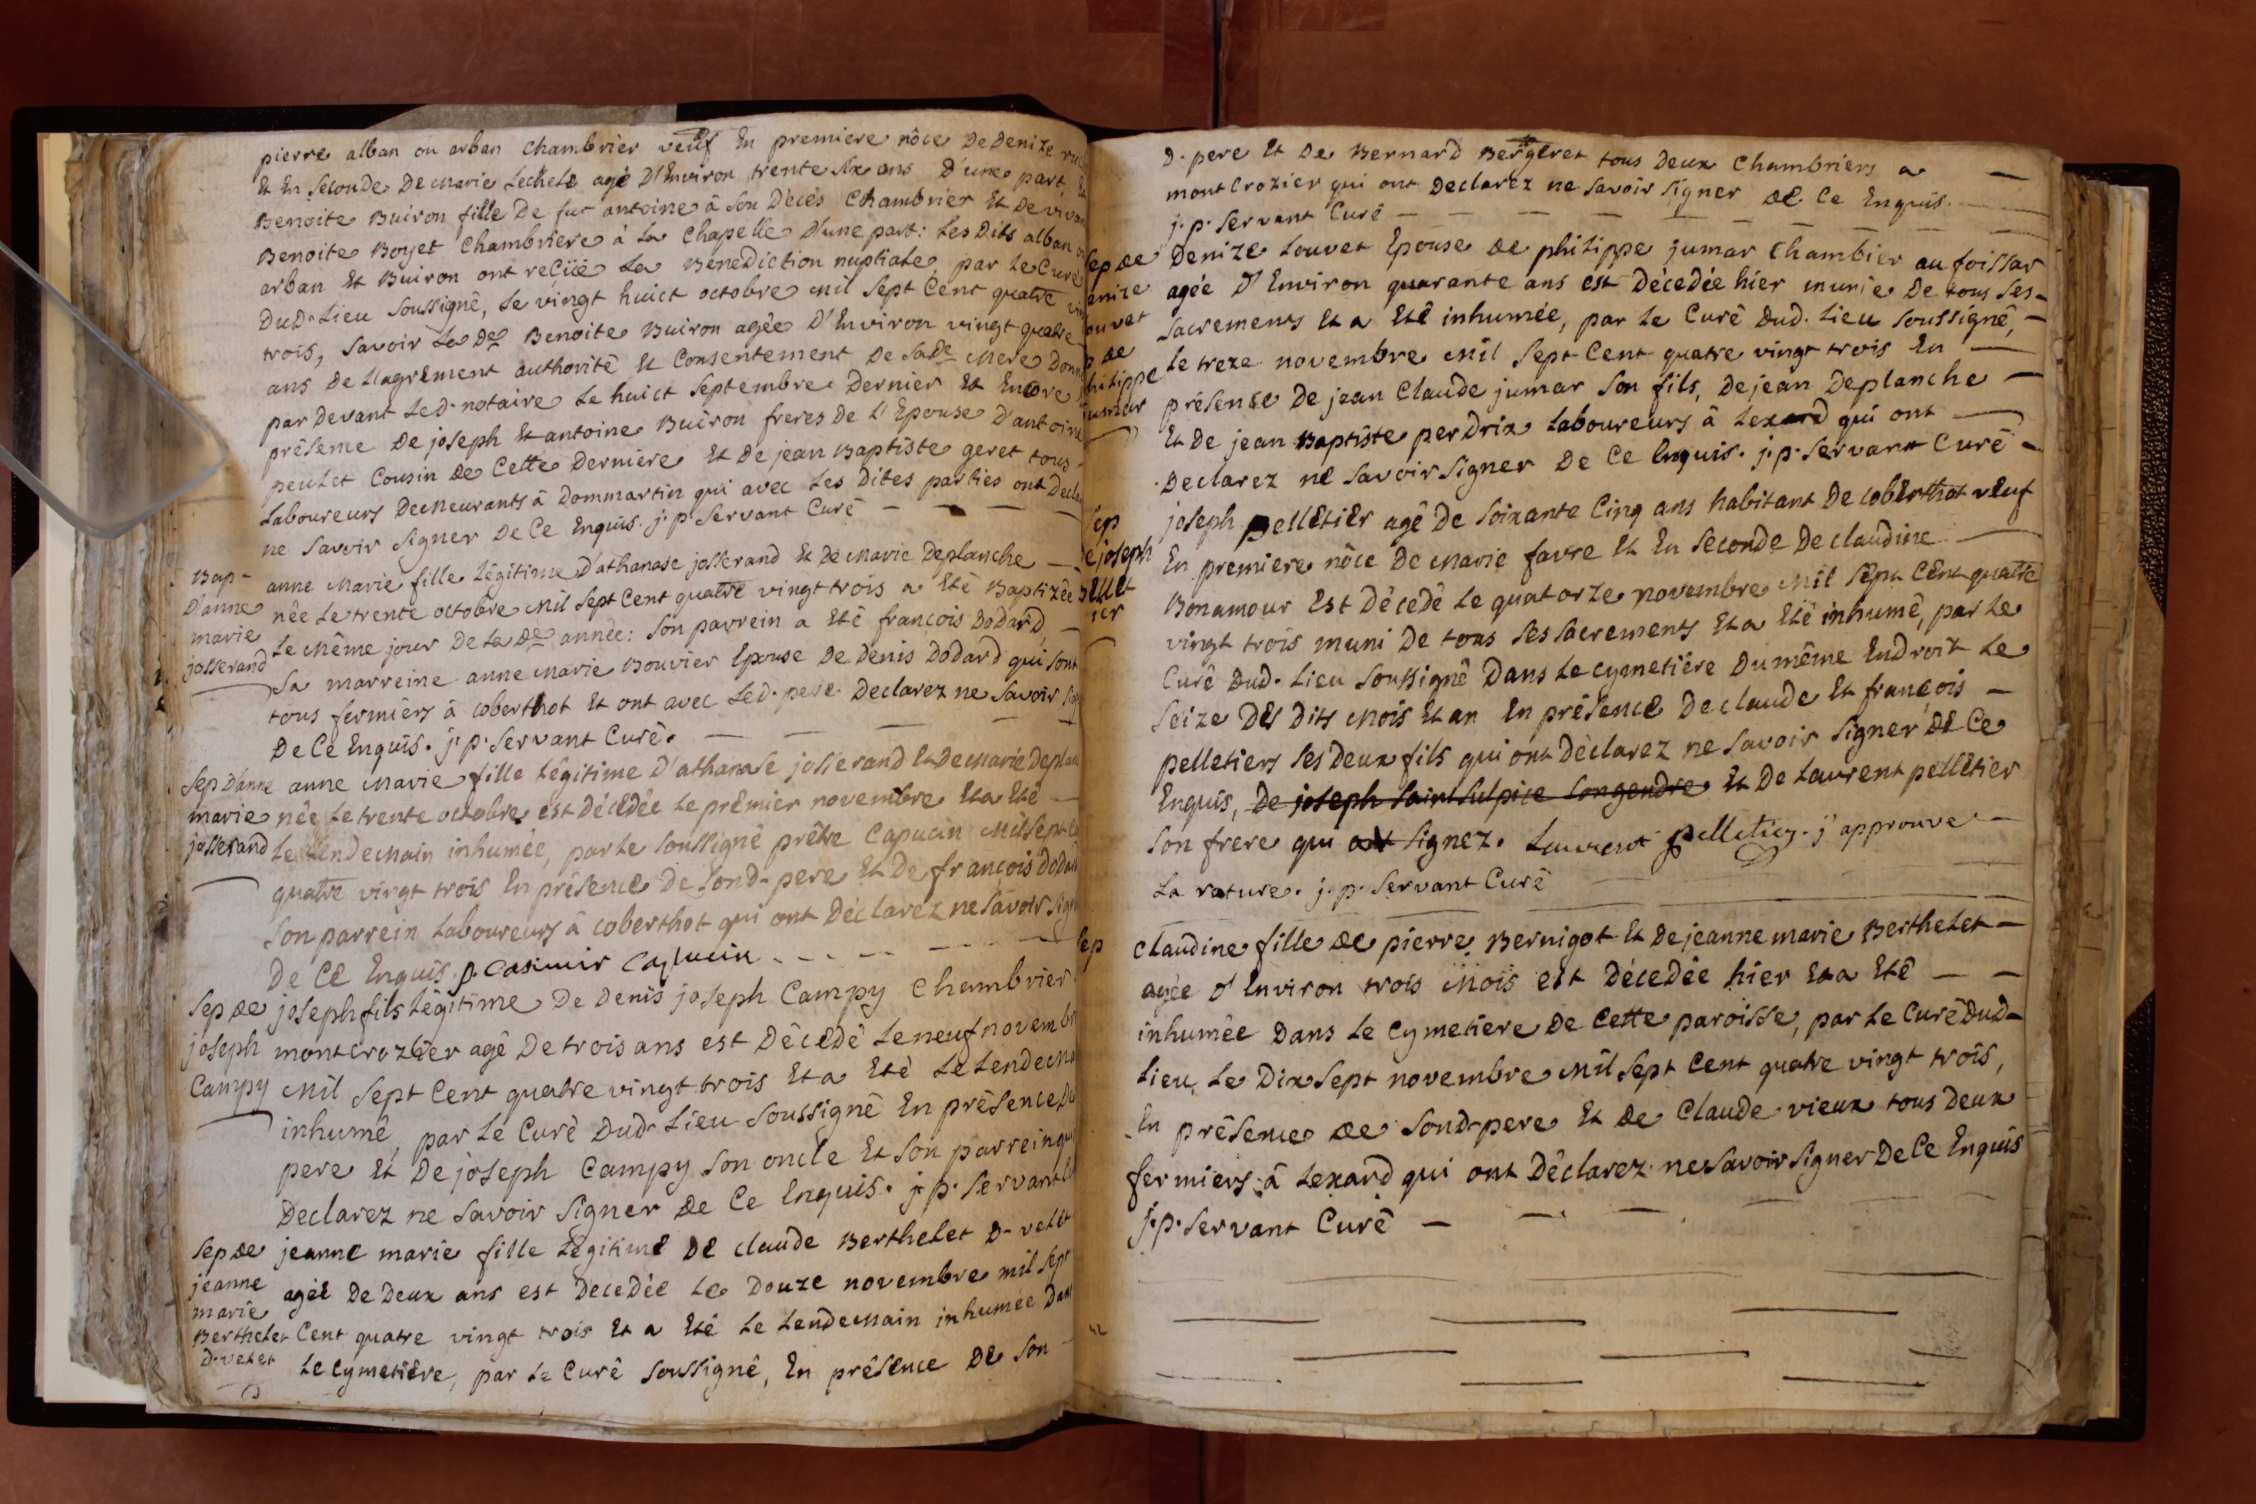 pierre alban ou arban chambrier veuf En premiere nôce De Denize
Et En seconde De Marie Lechele agé D'Environ trente six ans D'une part
Benoite Buiron fille De fut antoine â son Décès Chambrier Et De
Benoite Boyet Chambriere à La Chapelle D'une part: Les Dits alban
arban Et Buiron ont reçüe La Benediction nuptiale, par Le Curé
Dud. Lieu soussigné, Le vingt huict octobre Mil Sept Cent quatre
trois, savoir La De Benoite Buiron agée D'Environ vingt quatre
ans De L'agrement authorité Et Consentement De Sa De Mere
par Devant Led. notaire Le huict septembre Dernier Et Encore
présence De joseph Et antoine Buiron freres De L'Epouse D'antoine
peulet Cousin De Cette Derniere Et De jean Baptiste geret tous
Laboureurs Demeurants â Dommartin qui avec Les Dites parties ont
ne savoir signer De Ce Enquis. j. p. Servant Curé
Bap-
D'anne
marie
josserand
anne Marie fille Légitime D'athanase josserand Et De Marie Deplanche
née Le trente octobre Mil Sept Cent quatre vingt trois a Eté Baptizée
Le Même jour De La De année: son parrein a Eté françois Dodard,
sa marreine anne Marie Bouvier Epouse De Denis Dodard qui sont
tous fermiers â coberthot Et ont avec Led. pere Declarez ne savoir
De Ce Enquis. j. p. Servant Curé.
Sep D'anne
marie
josserand
anne Marie fille Légitime D'athanase josserand Et De Marie
née Le trente octobre est Décédée Le prémier novembre Et a Eté
Le Lendemain inhumée, par Le soussigné prêtre Capucin Mil Sept
quatre vingt trois En présence De sond. pere Et De françois
son parrein Laboureurs â coberthot qui ont Déclarez ne savoir
De Ce Enquis. p. Casimir Capucin
Sep De
joseph
Campy
joseph fils Légitime De Denis joseph Campy Chambrier
montcrozier agé De trois ans est Décédé Le neuf
Mil Sept Cent quatre vingt trois Et a Eté Le
inhumé, par Le Curé Dud. Lieu soussigné En présence
pere Et De joseph Campy son oncle Et son parrein
Declarez ne savoir signer De Ce Enquis. j. p. Servant
Sep De
jeanne
marie
Berthelet
D. velet
jeanne marie fille Légitime De claude Berthelet D. velet
agée De Deux ans est Decedée Le Douze novembre mil Sept
Cent quatre vingt trois Et a Eté Le Lendemain inhumée Dans
Le Cymetiére, par Le Curé soussigné, En présence De son
D. pere Et De Bernard Bergeret tous Deux Chambriers a
montcrozier qui ont Declarez ne savoir signer De Ce Enquis.
j. p. Servant Curé
Denize Louvet Epouse De philippe jumar Chambier au foissar
agée D'Environ quarante ans est Décédée hier munie De tous ses
sacrements Et a Eté inhumée, par Le Curé Dud. Lieu soussigné,
Le treze novembre Mil Sept Cent quatre vingt trois En
présence De jean Claude jumar son fils, De jean Deplanche
Et De jean Baptiste perdrix Laboureurs â Lexard qui ont
Declarez ne savoir signer De Ce Enquis. j. p. Servant Curé
joseph pelletier agé De soixante Cinq ans habitant De coberthot veuf
En premiere nôce De Marie favre Et En seconde De claudine
Bonamour Est Décédé Le quatorze novembre Mil Sept Cent quatre
vingt trois muni De tous ses sacrements Et a Eté inhumé, par Le
Curé Dud. Lieu soussigné Dans Le cymetiére Du même Endroit Le
seize Des Dits Mois Et an En présence De claude Et françois
pelletiers ses Deux fils qui ont Déclarez ne savoir signer De Ce
Enquis, De joseph saint sulpice son gendre Et De Laurent pelletier
son frere qui signez. Laurent pelletier. j'approuve
La rature. j. p. Servant Curé
Sep
Claudine fille De pierre Bernigot Et De jeanne marie Berthelet
agée D'Environ trois Mois est Décedée hier Et a Eté
inhumée Dans Le Cymetiere De Cette paroisse, par Le Curé Dud.
Lieu, Le Dix Sept novembre Mil Sept Cent quatre vingt trois,
En présence De sond. pere Et De Claude vieux tous Deux
fermiers â Lexard qui ont Déclarez ne savoir signer De Ce Enquis
j. p. Servant Curé